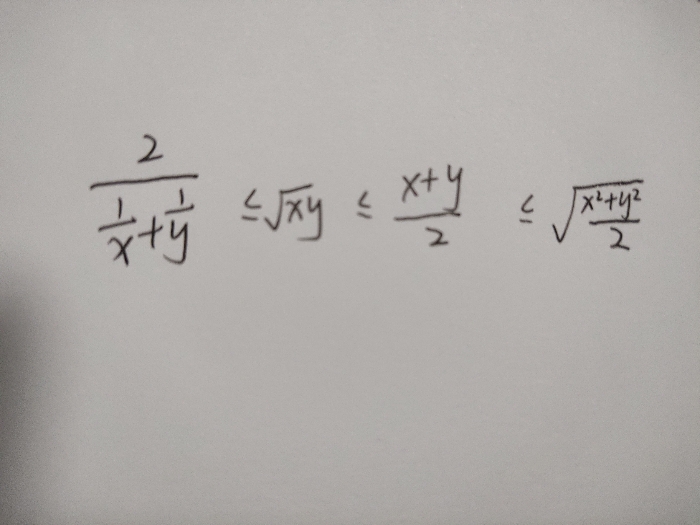 \frac{2}{\frac{1}{x}+\frac{1}{y}} \leq \sqrt{x}y \leq \frac{x+y}{2} \leq \sqrt{\frac{x^2+y^2}{2}}